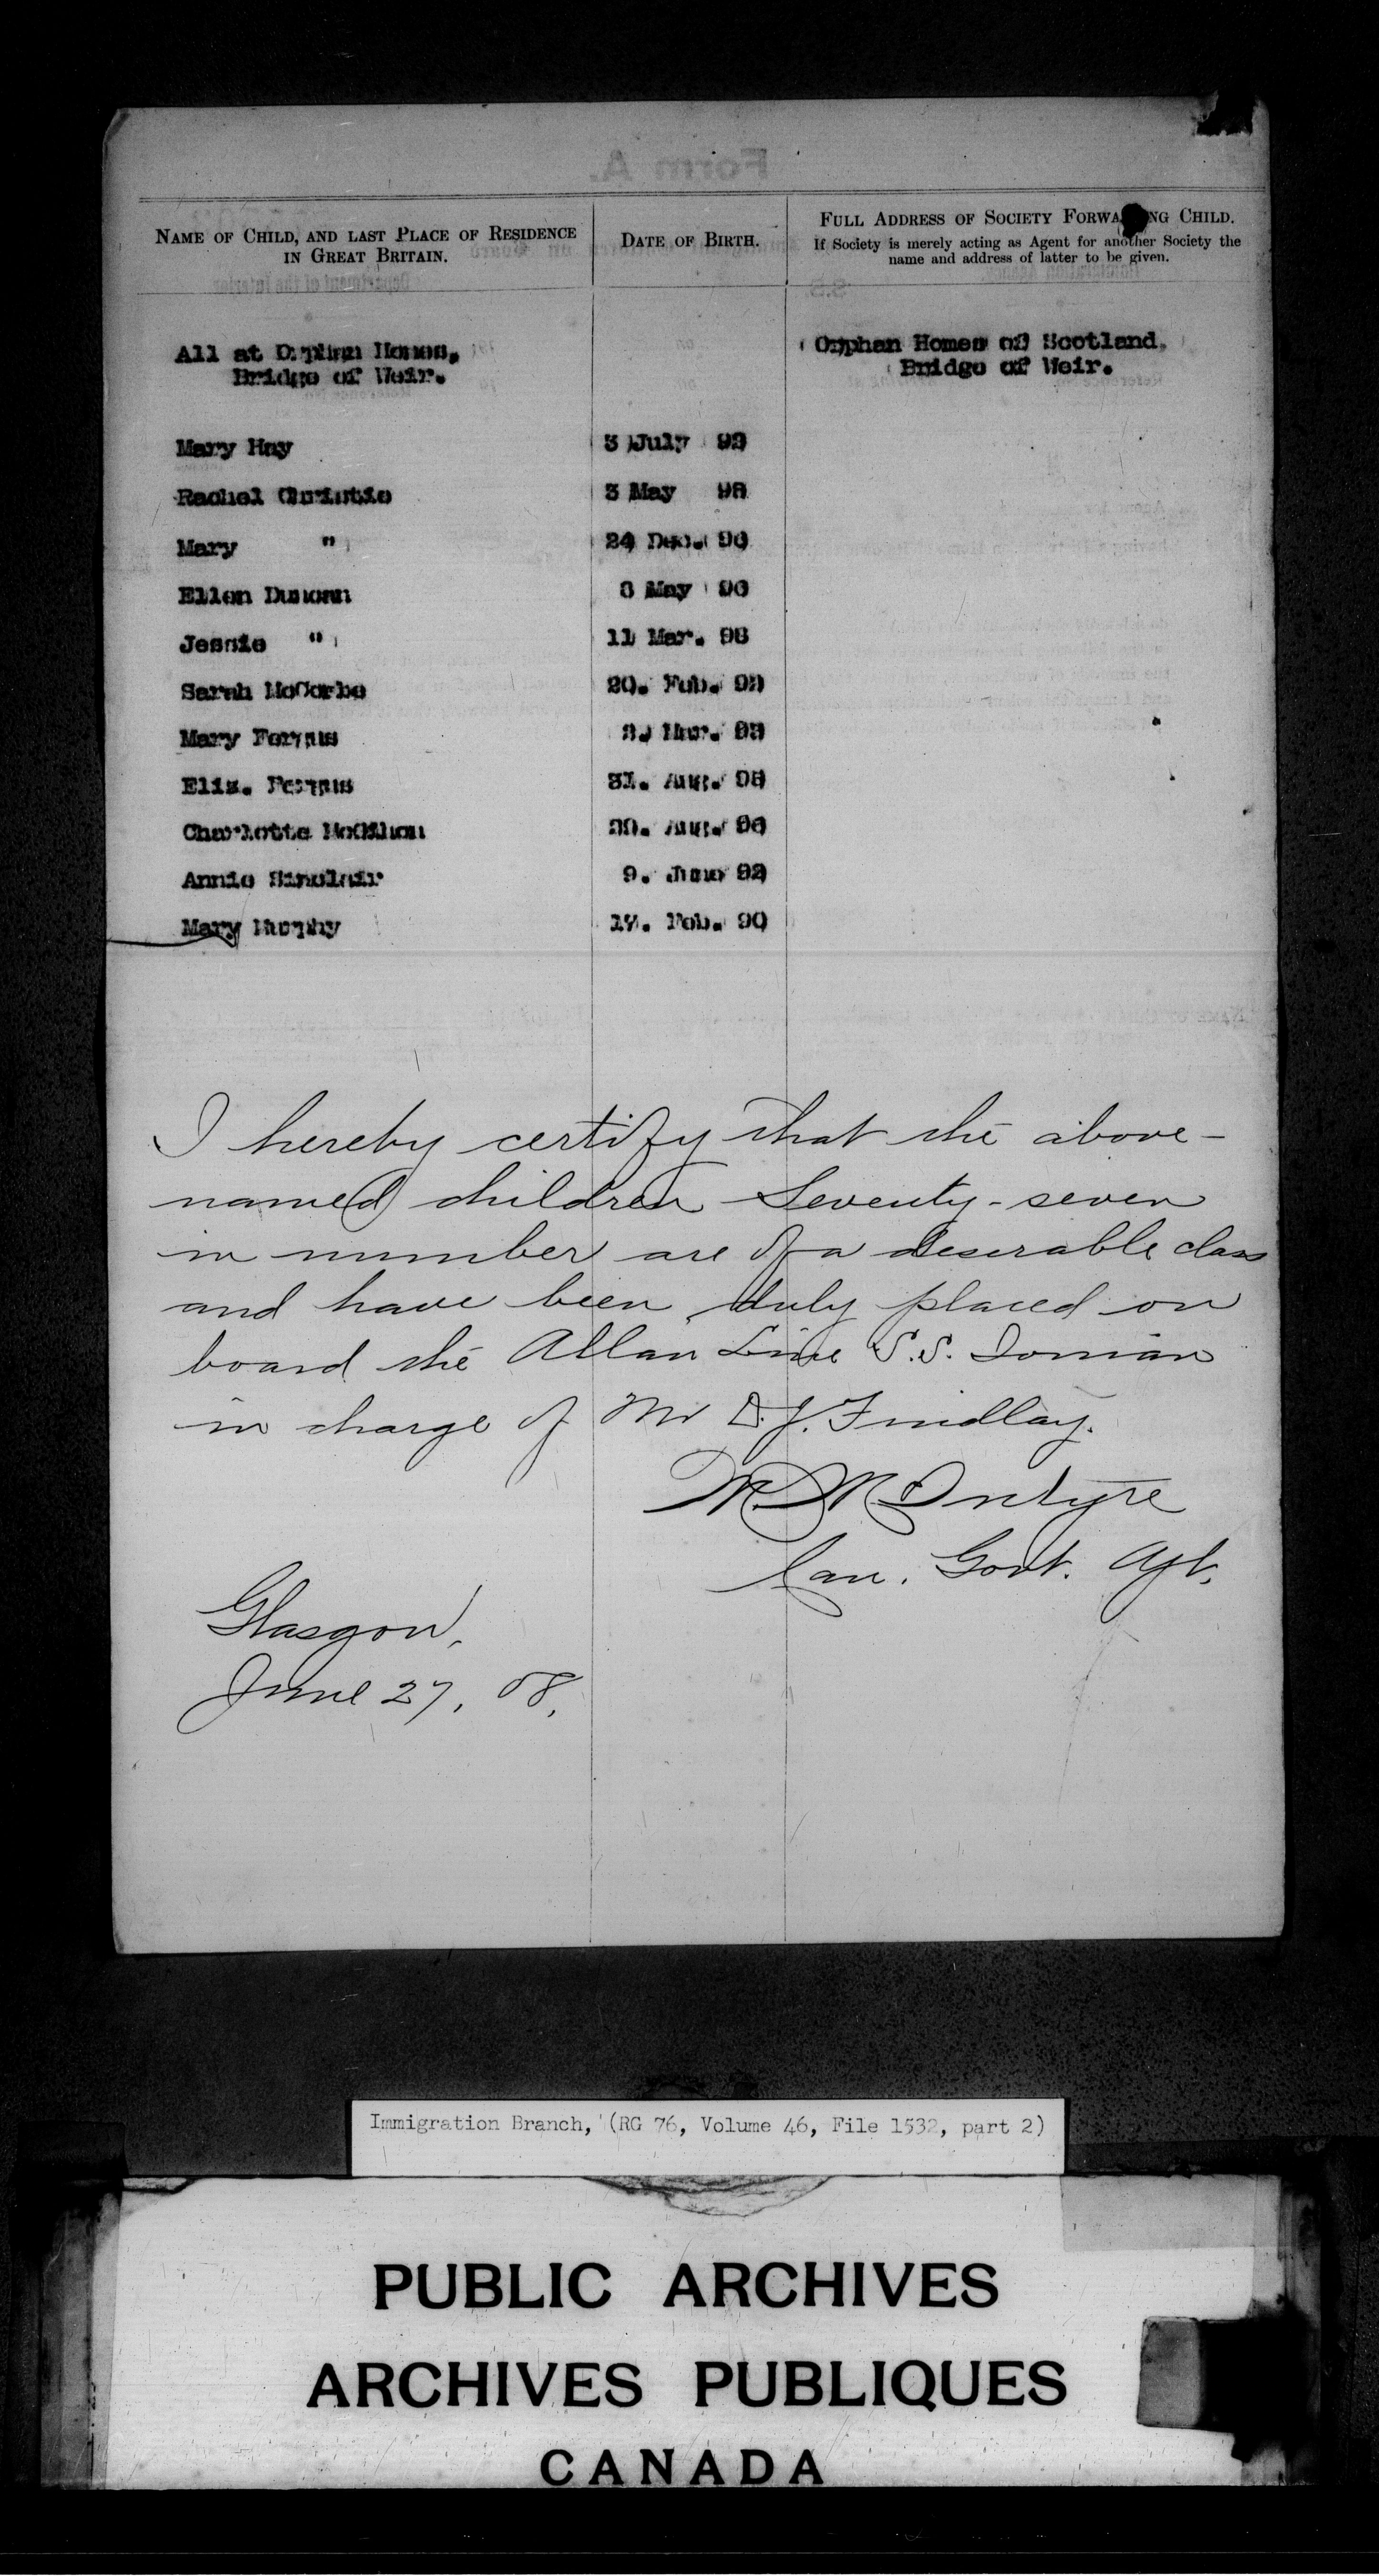 NAME OF CHILD, AND LAST PLACE OF RESIDENCE
IN GREAT BRITAIN.
DATE OF BIRTH.
FULL ADDRESS OF SOCIETY FORWA NG CHILD.
If Society is merely acting as Agent for another Society the
name and address of latter to be given.
All at Orphan Homes,
Bridge of Weir.
Orphan Homes of Scotland,
Bridge of Weir.
Mary Hay 3 July
Rachel Christie 3 May
Mary " 24 Dec.
Ellen Duncan May
Jessie " 11 Mar.
Sarah 20. Feb.
Mary Fergus Mar.
Eliz. Fergus 31. Aug.
Charlotte Aug.
Annie Sinclair 9. June 92
Mary Murphy 17. Feb. 90
I hereby certify that the above-
named children Seventy-seven
in number are of a deserable class
and have been duly placed on
board the Allan Line S.S. Ionian
in charge of Mr D. J. Findlay.
M. McIntyre
Can. Govt. Agt.
Glasgow,
June 27, 08.
Immigration Branch, (RG 76, Volume 46, File 1532, part 2)
PUBLIC ARCHIVES
ARCHIVES PUBLIQUES
CANADA